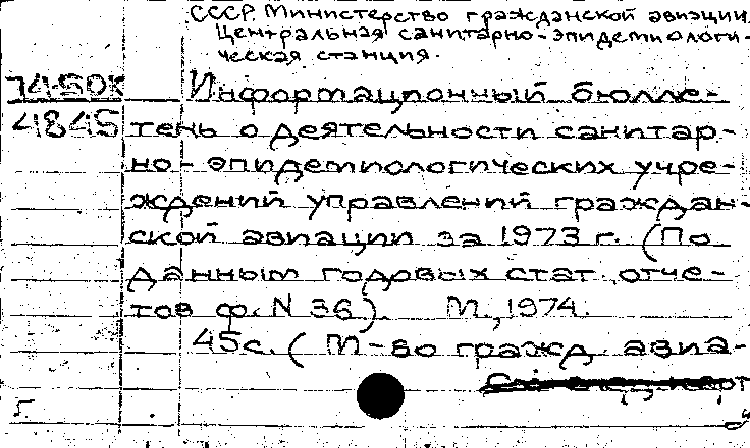 СССР. Министерство гражданской авиации.
Центральная санитарно-эпидемиологи-
ческая станция.
74-50К
4845
Информационный бюлле-
тень о деятельности санитар-
но-эпидемиологических учре-
ждений управлений граждан-
ской авиации за 1973 г. (По
данным годовых стат. отче-
тов ф. N 36). М., 1974.
45с. (М-во гражд. авиа-
Г